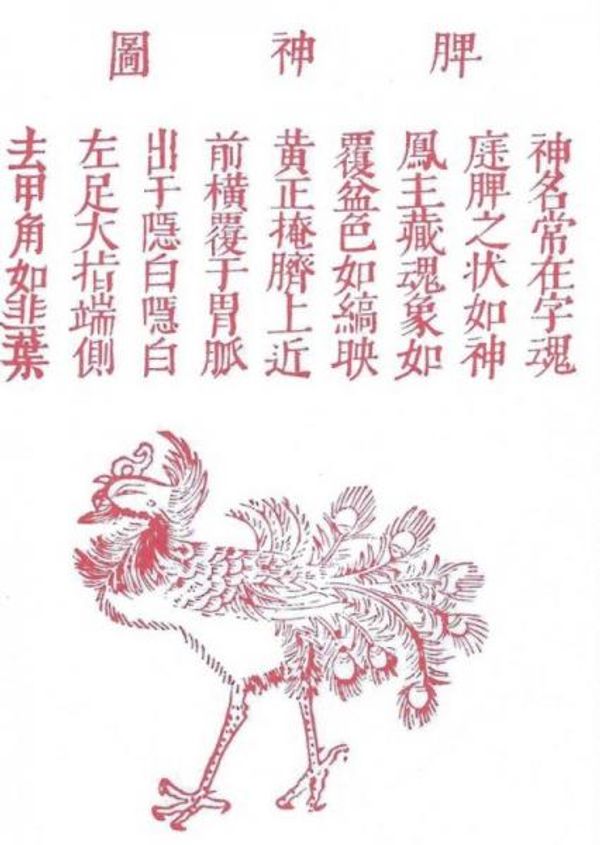 脾神圖
神名常在字魂
庭脾之状如神
鳳主藏魂象如
覆盆色如縞映
黃正掩臍上近
前橫覆于胃脈
出于隱白隱白
左足大指端側
去甲角如韭葉